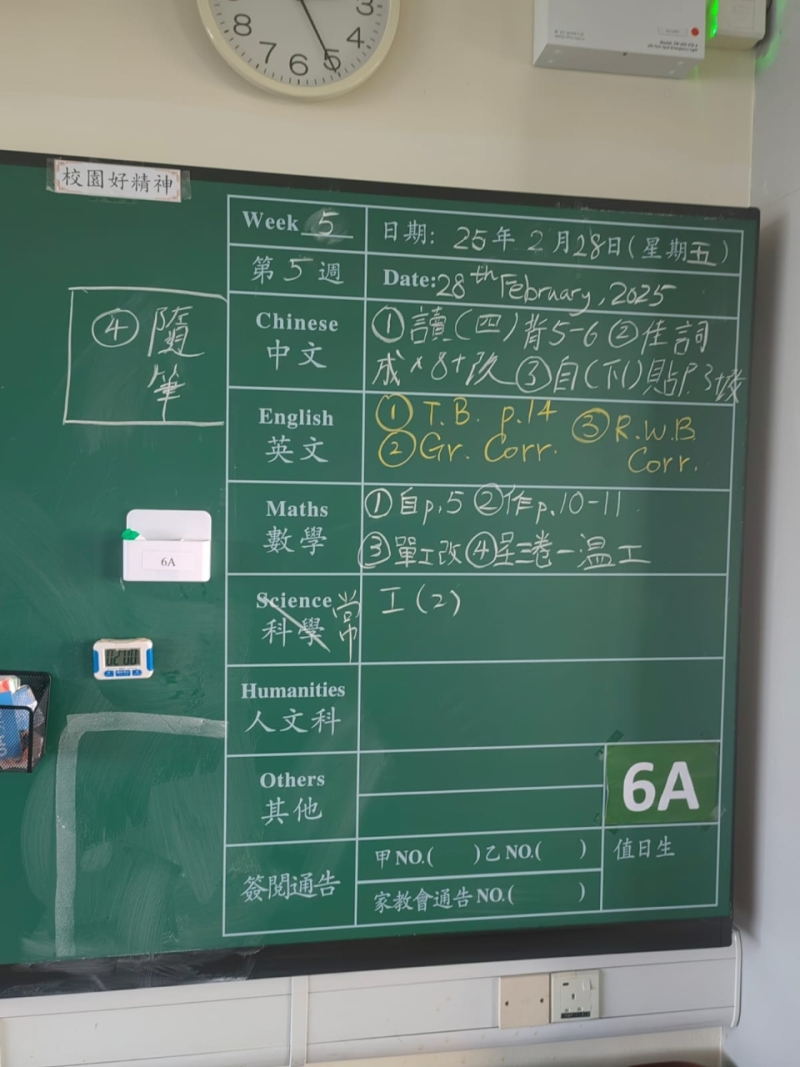 8 7 6 5 4 3
校園好精神
Week 5
日期: 25年2月28日(星期五)
第5週
Date: 28th February, 2025
④ 隨
筆
Chinese
中文
①讀(四)背5-6 ②佳詞
成×8+改 ③自(下)貼P.3
English
英文
① T.B. p.14
② Gr. Corr.
③ R.W.B.
Corr.
Maths
數學
①自p.5 ②作p.10-11
③單工改④星三卷一溫工
Science 常
科學
I (2)
6A
02:00
Humanities
人文科
Others
其他
6A
簽閱通告
甲NO.( )乙NO.( )
家教會通告NO.( )
值日生